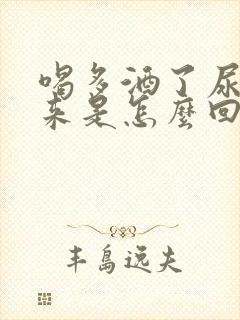 喝多酒了尿
来是怎麼回
丰島逸夫